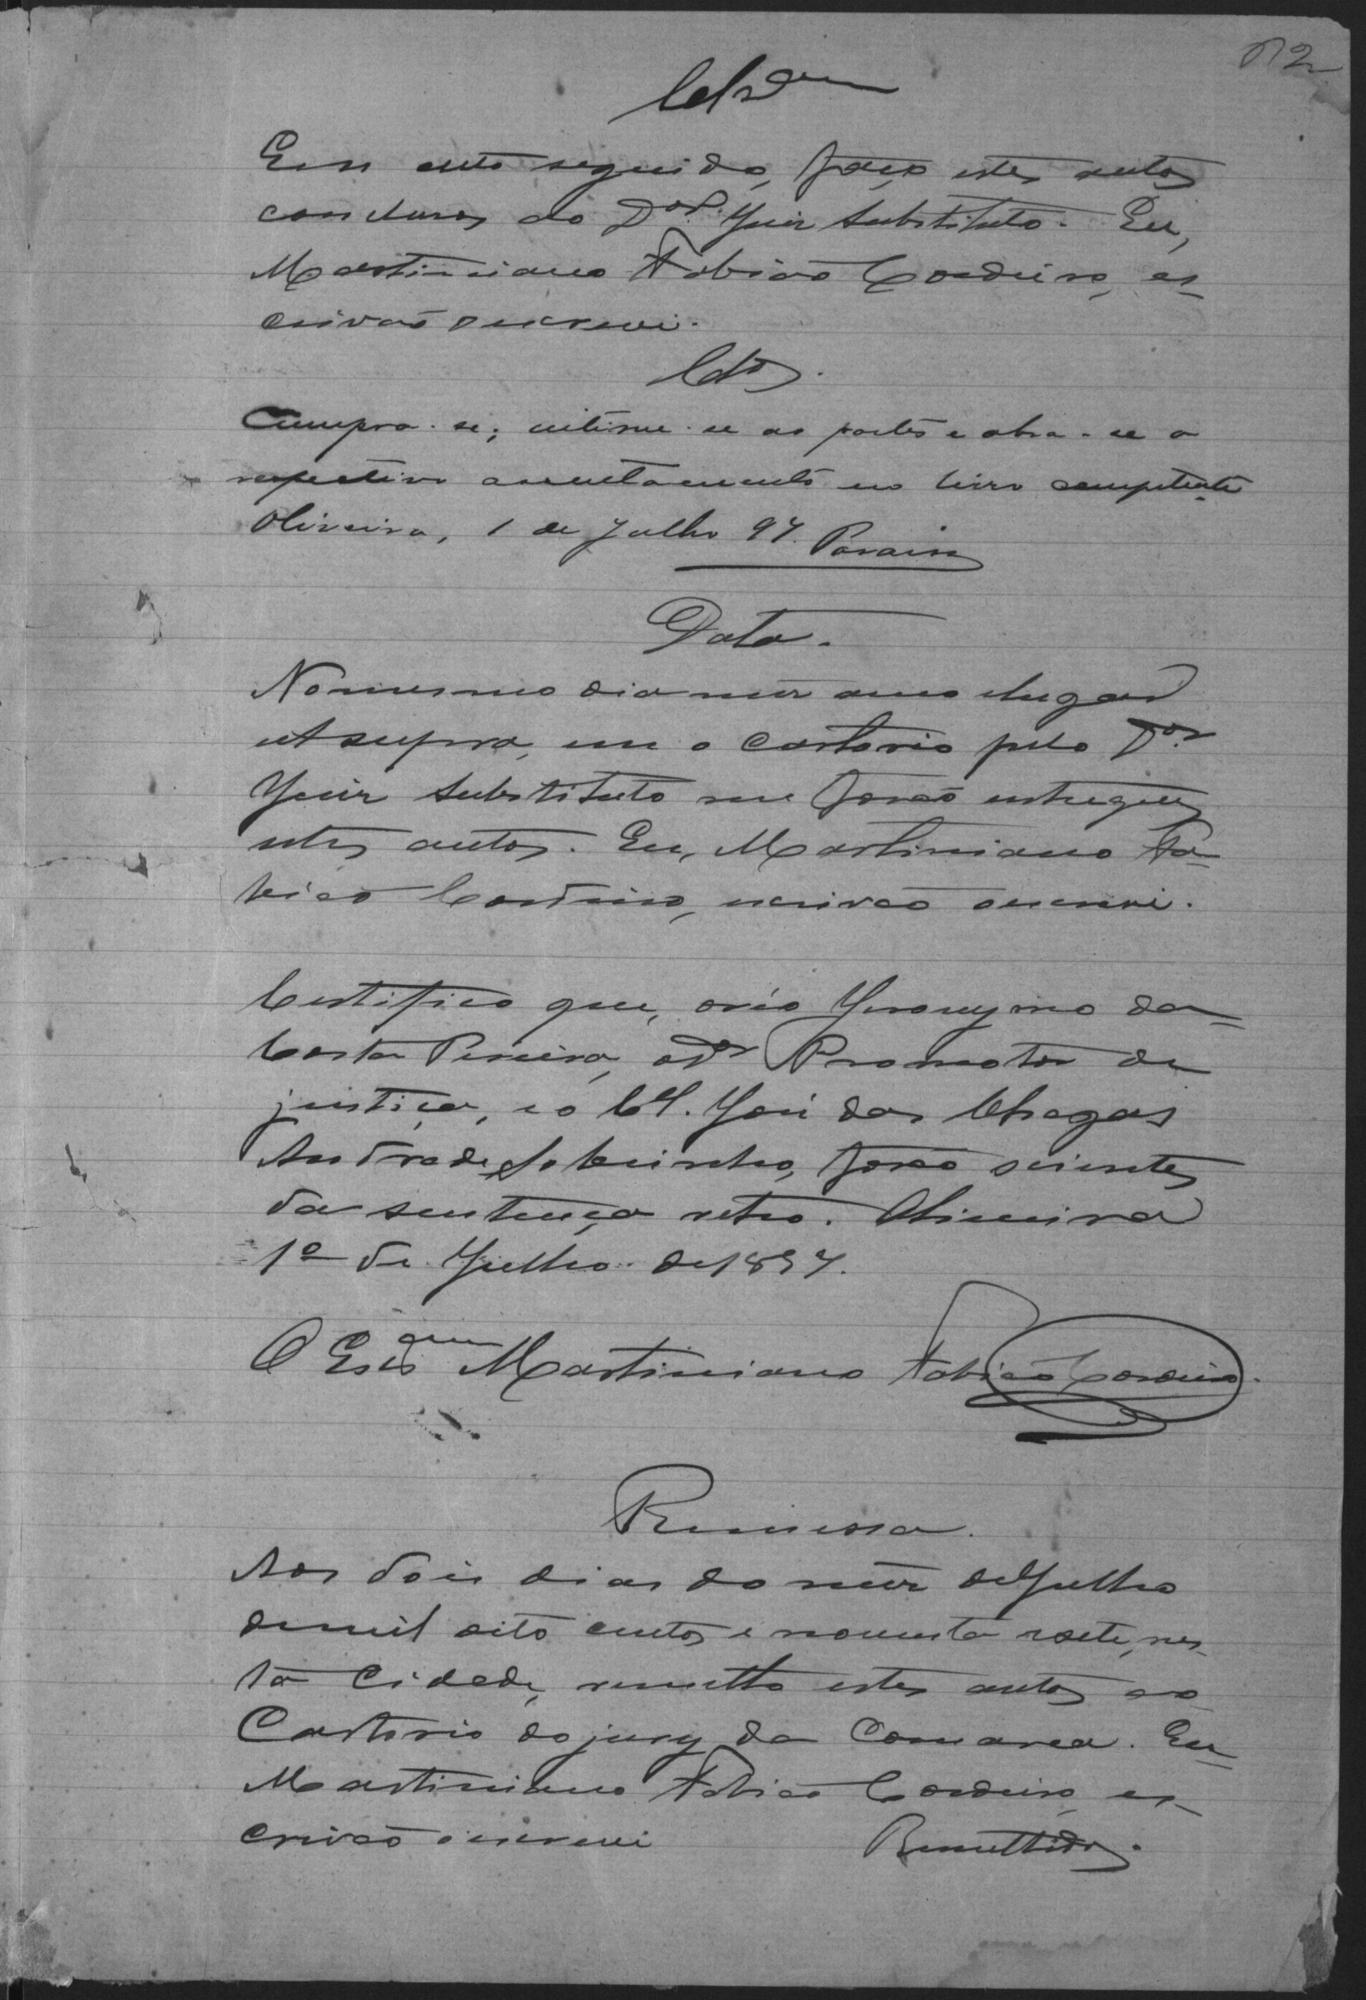 Clsam
Em acto seguido, faço estes autos
conclusos ao Dor Juiz Substituto. Eu,
Martiniano Fabião Cordeiro, es-
crivão o escrevi.
Clos.
Cumpra-se; intime-se as partes e abra-se o
respectivo assentamento no livro competente
Oliveira, 1 de Julho 97.
Data.
No mesmo dia mez anno e lugar
ut supra, em o cartorio pelo Dor
Juiz Substituto me forão entregues
estes autos. Eu, Martiniano Fa-
bião Cordeiro, escrivão o escrevi.
Certifico que, o réo Jeronymo da
Costa Pereira, o Dor Promotor de
justiça, e o Cel. José das Chagas
Andrade Sobrinho, forão scientes
da sentença retro. Oliveira
1º de Julho de 1897.
O Escam Martiniano Fabião Cordeiro.
Remessa.
Aos dois dias do mez de Julho
de mil oito centos e noventa e sete, nes-
ta Cidade, remetto estes autos ao
Cartorio do jury da Comarca. Eu
Martiniano Fabião Cordeiro, es-
crivão o escrevi
Remettidos.